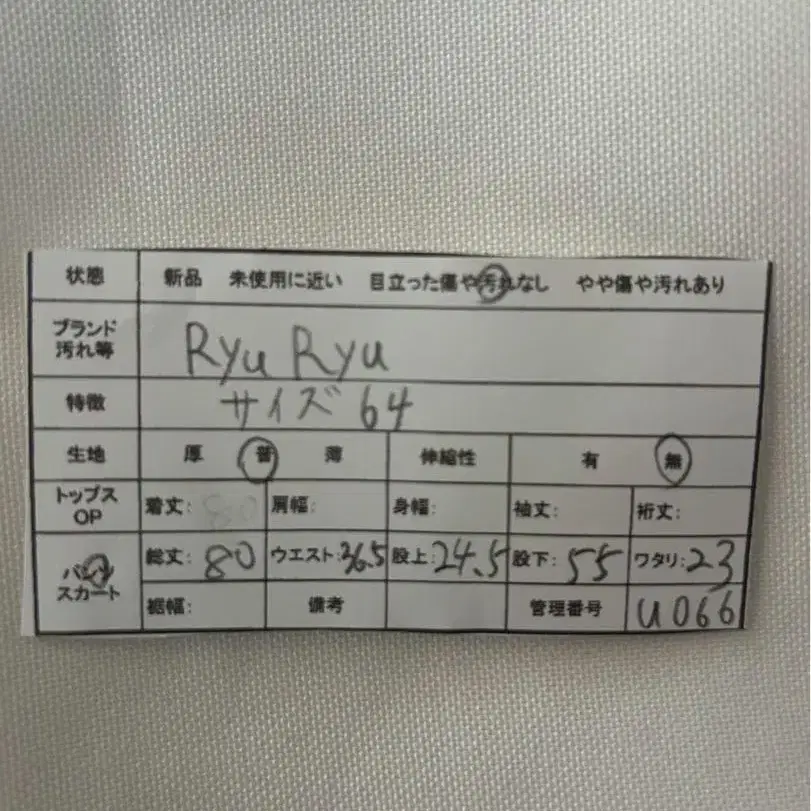 状態 新品 未使用に近い 目立った傷や汚れなし やや傷や汚れあり
ブランド
汚れ等 Ryu Ryu
特徴 サイズ 64
生地 厚 普 薄 伸縮性 有 無
トップス
OP 着丈: 80 肩幅: 身幅: 袖丈: 裄丈:
パンツ
スカート 総丈: 80 ウエスト: 36.5 股上: 24.5 股下: 55 ワタリ: 23
裾幅: 備考 管理番号 U066